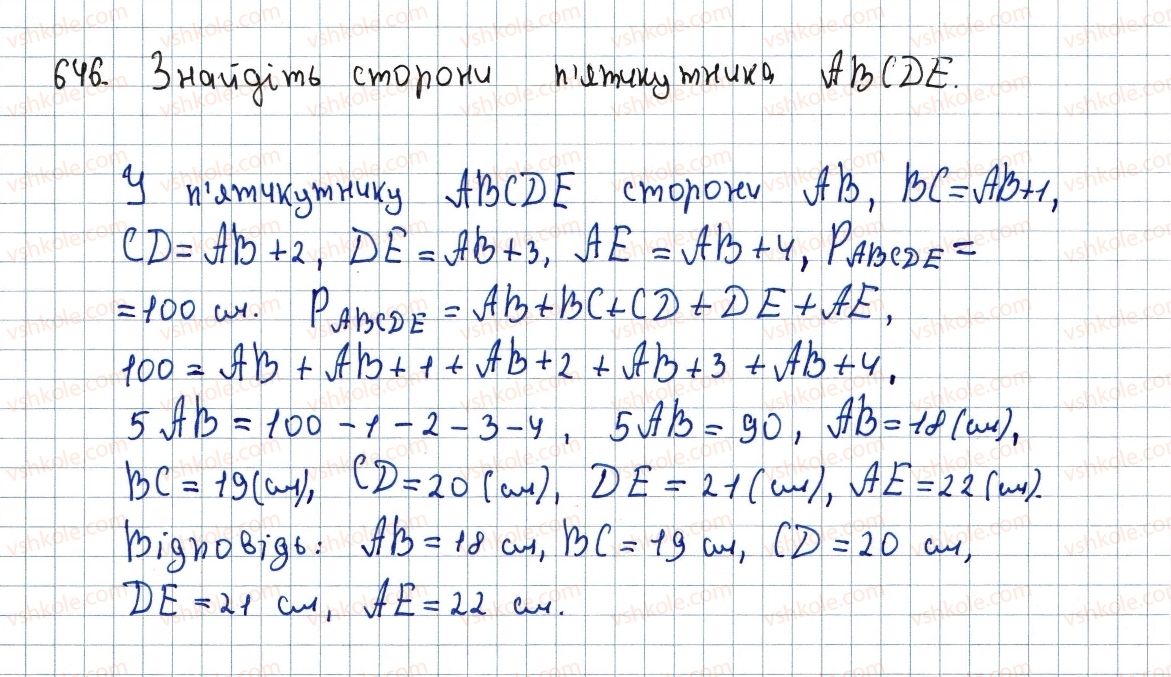 646. Знайдіть сторони п'ятикутника ABCDE.
У п'ятикутнику ABCDE сторони AB, BC=AB+1,
CD=AB+2, DE=AB+3, AE=AB+4, P_ABCDE=
=100 см. P_ABCDE=AB+BC+CD+DE+AE,
100=AB+AB+1+AB+2+AB+3+AB+4,
5AB=100-1-2-3-4, 5AB=90, AB=18(см),
BC=19(см), CD=20(см), DE=21(см), AE=22(см).
Відповідь: AB=18 см, BC=19 см, CD=20 см,
DE=21 см, AE=22 см.